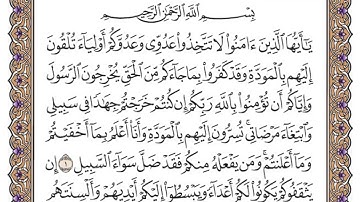 بِسْمِ اللَّهِ الرَّحْمَٰنِ الرَّحِيمِ
يَا أَيُّهَا الَّذِينَ ءَامَنُوا لَا تَتَّخِذُوا عَدُوِّي وَعَدُوَّكُمْ أَوْلِيَاءَ تُلْقُونَ
إِلَيْهِم بِالْمَوَدَّةِ وَقَدْ كَفَرُوا بِمَا جَاءَكُم مِّنَ الْحَقِّ يُخْرِجُونَ الرَّسُولَ
وَإِيَّاكُمْ أَن تُؤْمِنُوا بِاللَّهِ رَبِّكُمْ إِن كُنتُمْ خَرَجْتُمْ جِهَادًا فِي سَبِيلِي
وَابْتِغَاءَ مَرْضَاتِي تُسِرُّونَ إِلَيْهِم بِالْمَوَدَّةِ وَأَنَا أَعْلَمُ بِمَا أَخْفَيْتُمْ
وَمَا أَعْلَنتُمْ وَمَن يَفْعَلْهُ مِنكُمْ فَقَدْ ضَلَّ سَوَاءَ السَّبِيلِ ١ إِن
يَثْقَفُوكُمْ يَكُونُوا لَكُمْ أَعْدَاءً وَيَبْسُطُوا إِلَيْكُمْ أَيْدِيَهُمْ وَأَلْسِنَتَهُم